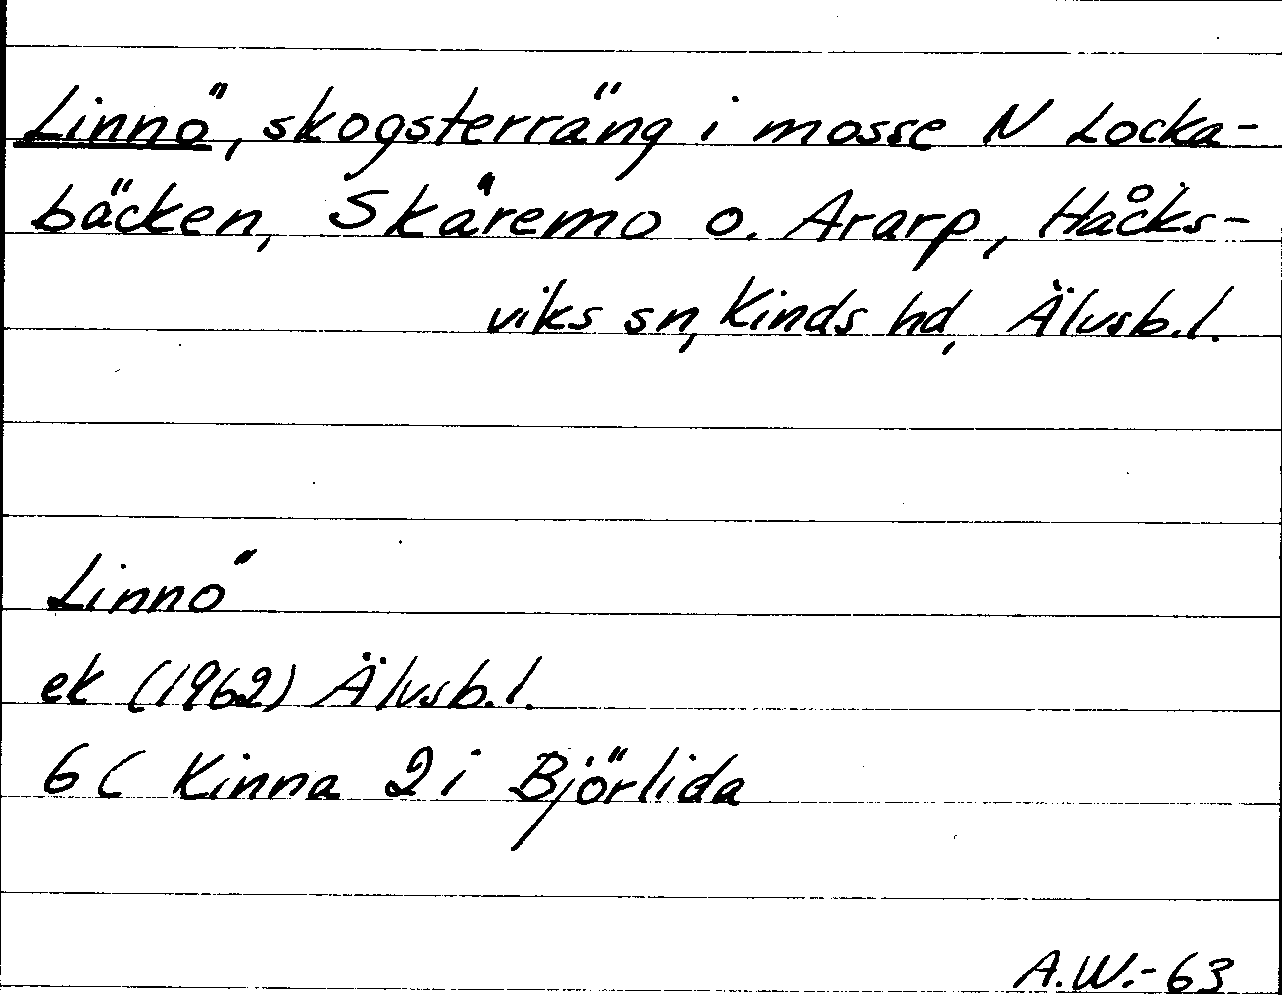 Linnö, skogsterräng i mosse N Locka-
bäcken, Skäremo o. Ararp, Håcks-
viks sn, Kinds hd, Älvsb.l.
Linnö
ek (1962) Älvsb.l.
6 C Kinna 2 i Björlida
A.W.-63